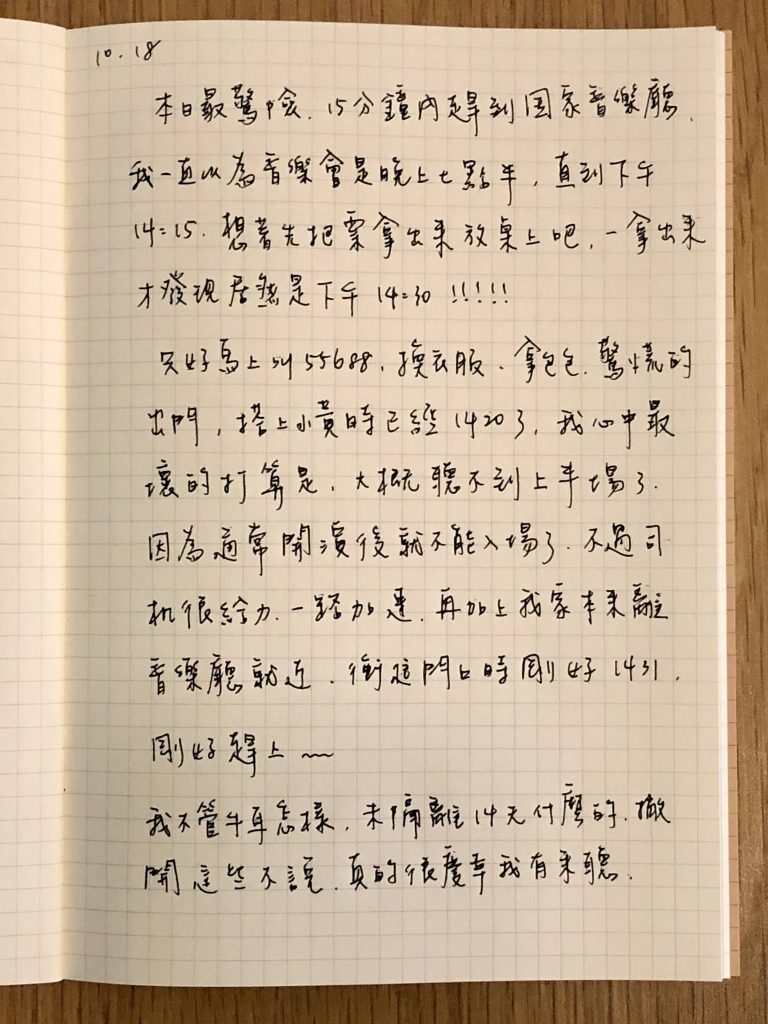 10.18
本日最驚險. 15分鐘內趕到国家音樂廳.
我一直以為音樂會是晚上七點半, 直到下午
14:15. 想著先把票拿出來放桌上吧, 一拿出來
才發現居然是下午14:30 !!!!!
只好馬上叫55688、換衣服、拿包包. 驚慌的
出門, 搭上小黃時已經1420了, 我心中最
壞的打算是, 大概聽不到上半場了.
因為通常開演後就不能入場了. 不過司
机很給力. 一路加速. 再加上我家本來離
音樂廳就近、衝進門口時剛好1431.
剛好趕上~~
我不管牛耳怎樣, 未隔離14天什麼的. 撇
開這些不說. 真的很慶幸我有來聽.